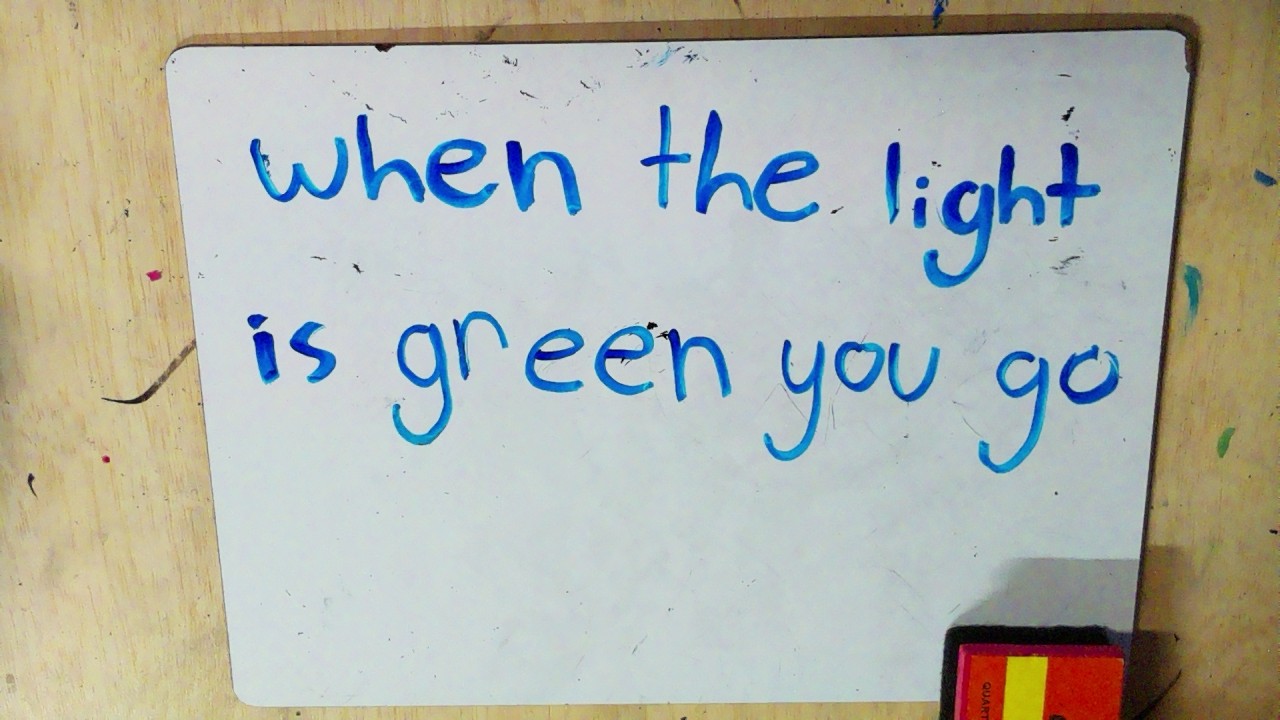 when the light
is green you go
QUART